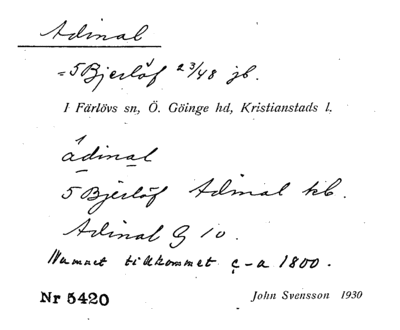 Adinal
= 5 Bjerlöf 2 3/48 jb.
I Färlövs sn, Ö. Göinge hd, Kristianstads l.
ádinal
5 Bjerlöf Adinal kb.
Adinal G 10.
Namnet tillkommet c-a 1800.
Nr 5420
John Svensson 1930